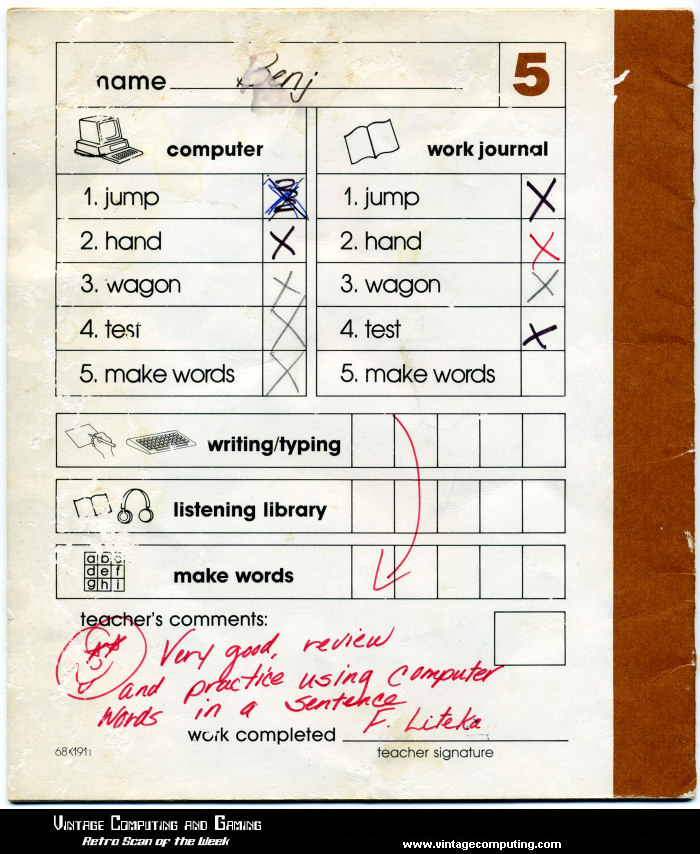 name Benj
5
computer
work journal
1. jump
2. hand
3. wagon
4. test
5. make words
1. jump
2. hand
3. wagon
4. test
5. make words
writing/typing
listening library
abc
def
ghi
make words
teacher's comments:
Very good, review
and practice using computer
words in a sentence
F. Liteka
work completed
teacher signature
68X191i
Vintage Computing and Gaming
Retro Scan of the Week
www.vintagecomputing.com